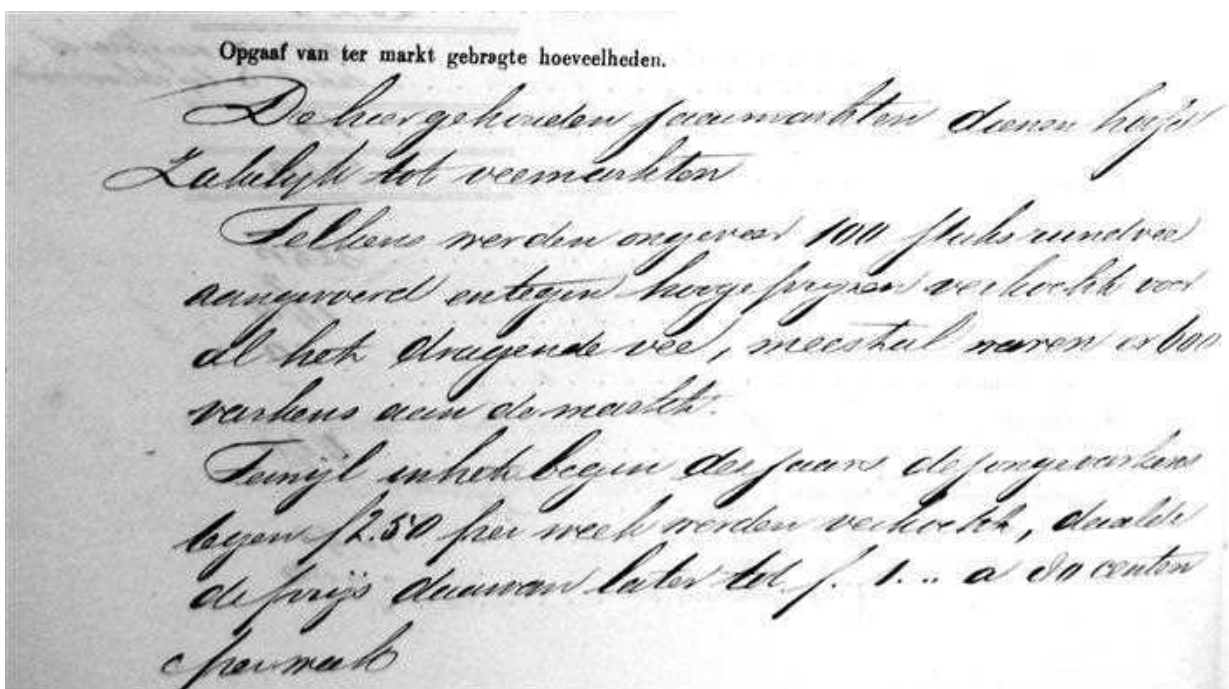 Opgaaf van ter markt gebragte hoeveelheden.
De hier gehouden jaarmarkten dienen hoofd
zakelijk tot veemarkten
Telkens werden ongeveer 100 stuks rundvee
aangevoerd en tegen hooge prijzen verkocht voor
al het dragende vee, meestal waren er 600
varkens aan de markt.
Terwijl in het begin des jaars de jonge varkens
tegen f 2.50 per week werden verkocht, daalde
de prijs daarvan later tot f. 1... a 80 centen
per week